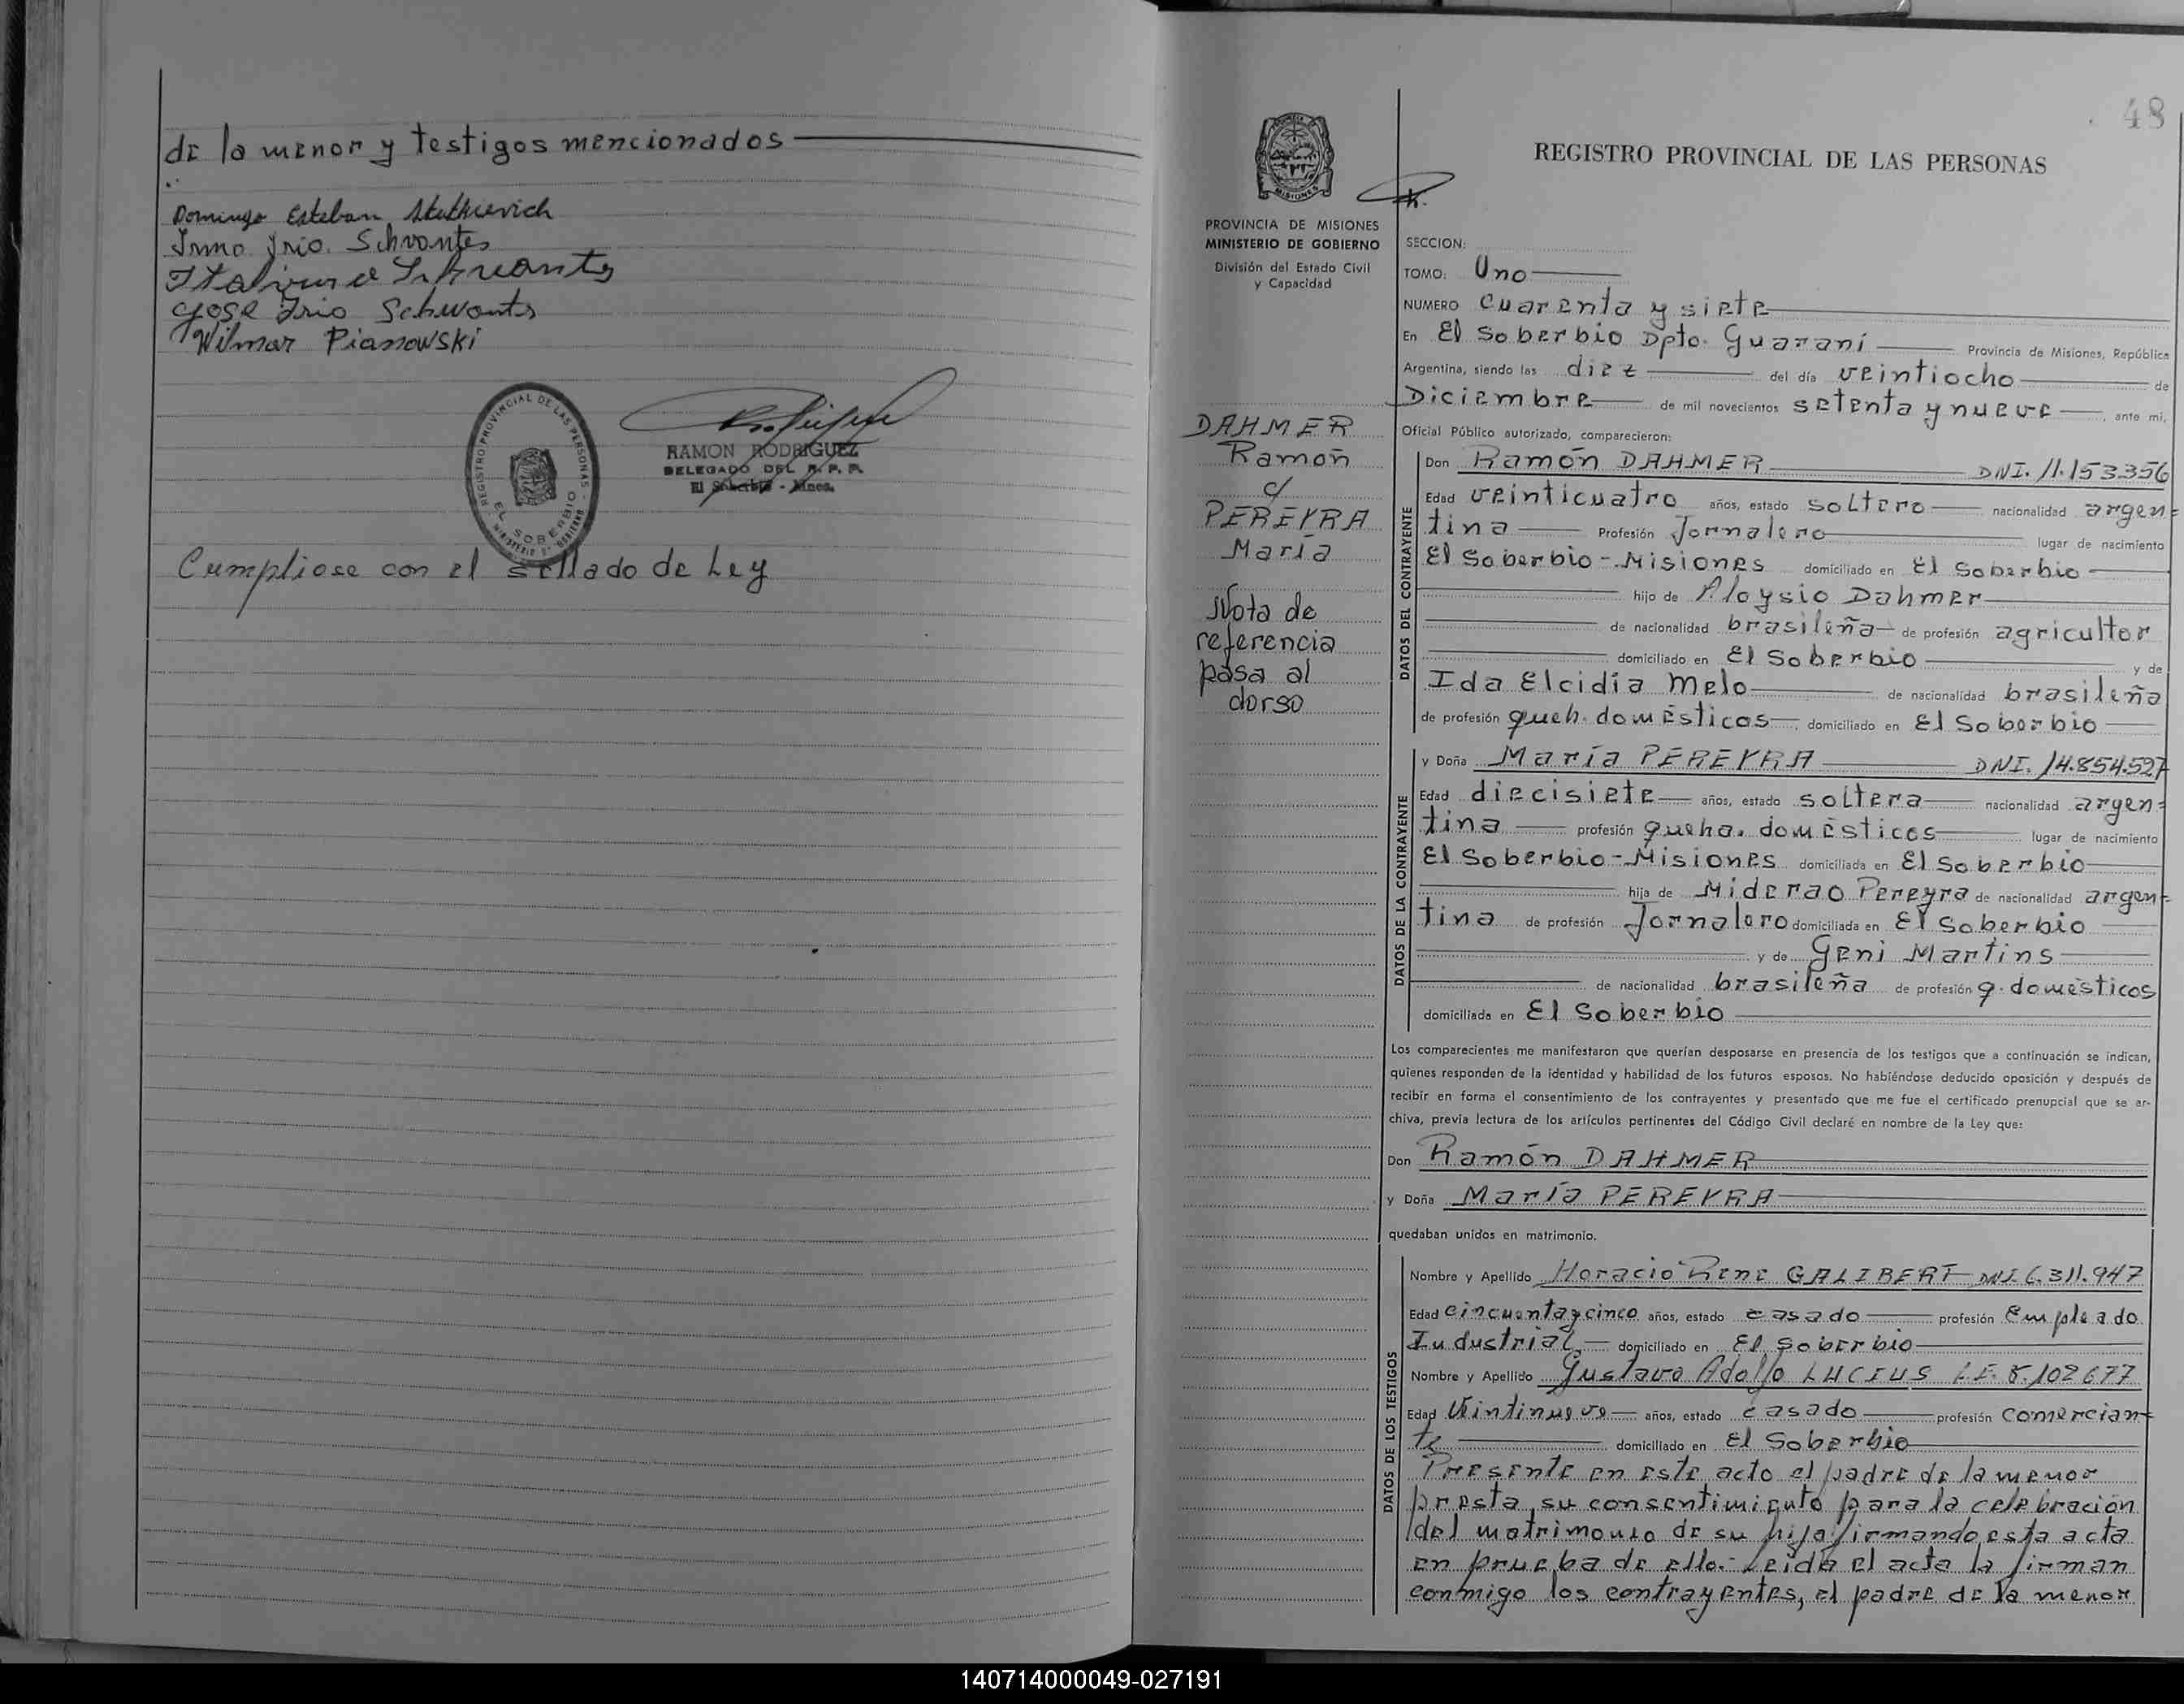 de la menor y testigos mencionados
Domingo Esteban
Irio Schvantes
Jose Irio Schwants
Wilmar Pianowski
REGISTRO PROVINCIAL DE LAS PERSONAS
EL SOBERBIO
RAMON RODRIGUEZ
DELEGADO DEL R. P. P.
El Soberbio - Mnes.
Cumpliose con el sellado de Ley
48
REGISTRO PROVINCIAL DE LAS PERSONAS
MISIONES
PROVINCIA DE MISIONES
MINISTERIO DE GOBIERNO
División del Estado Civil
y Capacidad
DAHMER
Ramón
c/
PEREYRA
María
Nota de
referencia
pasa al
dorso
SECCION:
TOMO: Uno
NUMERO cuarenta y siete
En El Soberbio Dpto. Guaraní Provincia de Misiones, República
Argentina, siendo las diez del día veintiocho de
Diciembre de mil novecientos setenta y nueve, ante mi,
Oficial Público autorizado, comparecieron:
DATOS DEL CONTRAYENTE
Don Ramón DAHMER DNI. 11.153.356
Edad veinticuatro años, estado soltero nacionalidad argen=
tina Profesión Jornalero lugar de nacimiento
El Soberbio - Misiones domiciliado en El Soberbio
hijo de Aloysio Dahmer
de nacionalidad brasileña de profesión agricultor
domiciliado en El Soberbio y de
Ida Elcidia Melo de nacionalidad brasileña
de profesión queh. domésticos, domiciliado en El Soberbio
DATOS DE LA CONTRAYENTE
y Doña María PEREYRA DNI. 14.854.527
Edad diecisiete años, estado soltera nacionalidad argen=
tina profesión queha. domésticos lugar de nacimiento
El Soberbio - Misiones domiciliada en El Soberbio
hija de Miderao Pereyra de nacionalidad argen=
tina de profesión Jornalero domiciliada en El Soberbio
y de Geni Martins
de nacionalidad brasileña de profesión q. domésticos
domiciliada en El Soberbio
Los comparecientes me manifestaron que querían desposarse en presencia de los testigos que a continuación se indican,
quienes responden de la identidad y habilidad de los futuros esposos. No habiéndose deducido oposición y después de
recibir en forma el consentimiento de los contrayentes y presentado que me fue el certificado prenupcial que se ar-
chiva, previa lectura de los artículos pertinentes del Código Civil declaré en nombre de la Ley que:
Don Ramón DAHMER
y Doña María PEREYRA
quedaban unidos en matrimonio.
DATOS DE LOS TESTIGOS
Nombre y Apellido Horacio Rene GALIBERT DNI. 6.311.947
Edad cincuenta y cinco años, estado casado profesión Empleado
Industrial domiciliado en El Soberbio
Nombre y Apellido Gustavo Adolfo LUCIUS L.E. 8.102677
Edad Veintinueve años, estado casado profesión comercian=
te domiciliado en El Soberbio
Presente en este acto el padre de la menor
presta su consentimiento para la celebración
del matrimonio de su hija firmando esta acta
en prueba de ello.- Leída el acta la firman
conmigo los contrayentes, el padre de la menor
140714000049-027191